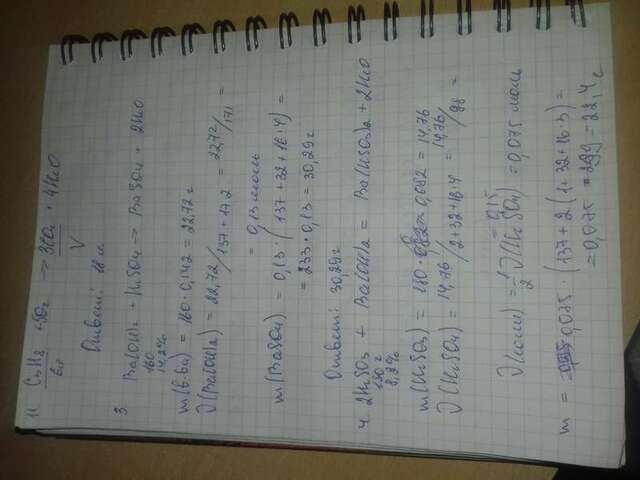 11 C3H8 + 5O2 → 3CO2 + 4H2O
6л V
Ответ: 18 л
3. Ba(OH)2 + H2SO4 → BaSO4 + 2H2O
160
14,2%
m(в-ва) = 160 · 0,142 = 22,72 г
ν(Ba(OH)2) = 22,72/137+17·2 = 22,72/171 =
= 0,13 моль
m(BaSO4) = 0,13 · (137+32+16·4) =
= 233 · 0,13 = 30,29 г
Ответ: 30,29 г
4. 2H2SO3 + Ba(OH)2 = Ba(HSO3)2 + 2H2O
180 г
8,2%
m(H2SO3) = 180 · 0,082 = 14,76
ν(H2SO4) = 14,76/2+32+16·4 = 14,76/98 =
= 0,15
ν(соли) = 1/2 ν(H2SO4) = 0,075 моль
m = 0,075 · (137 + 2(1+32+16·3) =
= 0,075 · 299 = 22,4 г